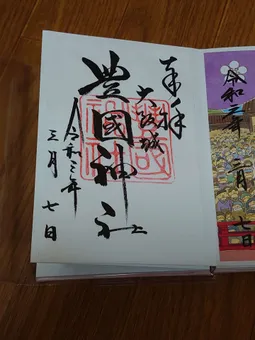 奉拝
大阪城
豊國神社
令和三年
三月七日
令和三年
二月
七日